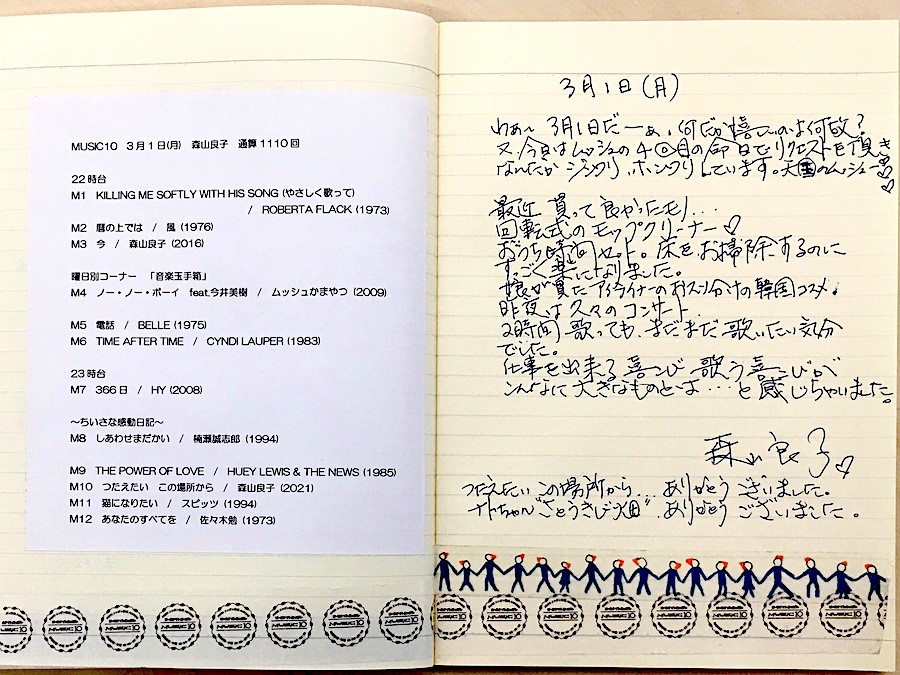 MUSIC10 3月1日(月) 森山良子 通算1110回
22時台
M1 KILLING ME SOFTLY WITH HIS SONG (やさしく歌って)
/ ROBERTA FLACK (1973)
M2 暦の上では / 風 (1976)
M3 今 / 森山良子 (2016)
曜日別コーナー 「音楽玉手箱」
M4 ノー・ノー・ボーイ feat.今井美樹 / ムッシュかまやつ (2009)
M5 電話 / BELLE (1975)
M6 TIME AFTER TIME / CYNDI LAUPER (1983)
23時台
M7 366日 / HY (2008)
～ちいさな感動日記～
M8 しあわせまだかい / 楠瀬誠志郎 (1994)
M9 THE POWER OF LOVE / HUEY LEWIS & THE NEWS (1985)
M10 つたえたい この場所から / 森山良子 (2021)
M11 猫になりたい / スピッツ (1994)
M12 あなたのすべてを / 佐々木勉 (1973)
3月1日(月)
わぁ〜 3月1日だーぁ、何だか嬉しいのは何故?
又、今日はムッシュの4回目の命日でリクエストを頂き
なんだかジックリ、ホンワリしています。天国のムッシュー♡♡
最近 買って良かったモノ...
回転式のモップクリーナー♡
おうち時間 床をお掃除するのに
すっごく楽になりました。
娘が買たアイライナーのおスソ分けの韓国コスメ。
昨夜は久々のコンサート。
2時間歌っても、まだまだ歌いたい気分
でした。
仕事を出来る喜こび 歌う喜こびが
こんなに大きなものとは...と感じちゃいました。
森山良子♡
つたえたい この場所から... ありがとうございました。
"さとうきび畑" ありがとうございました。
MUSIC10